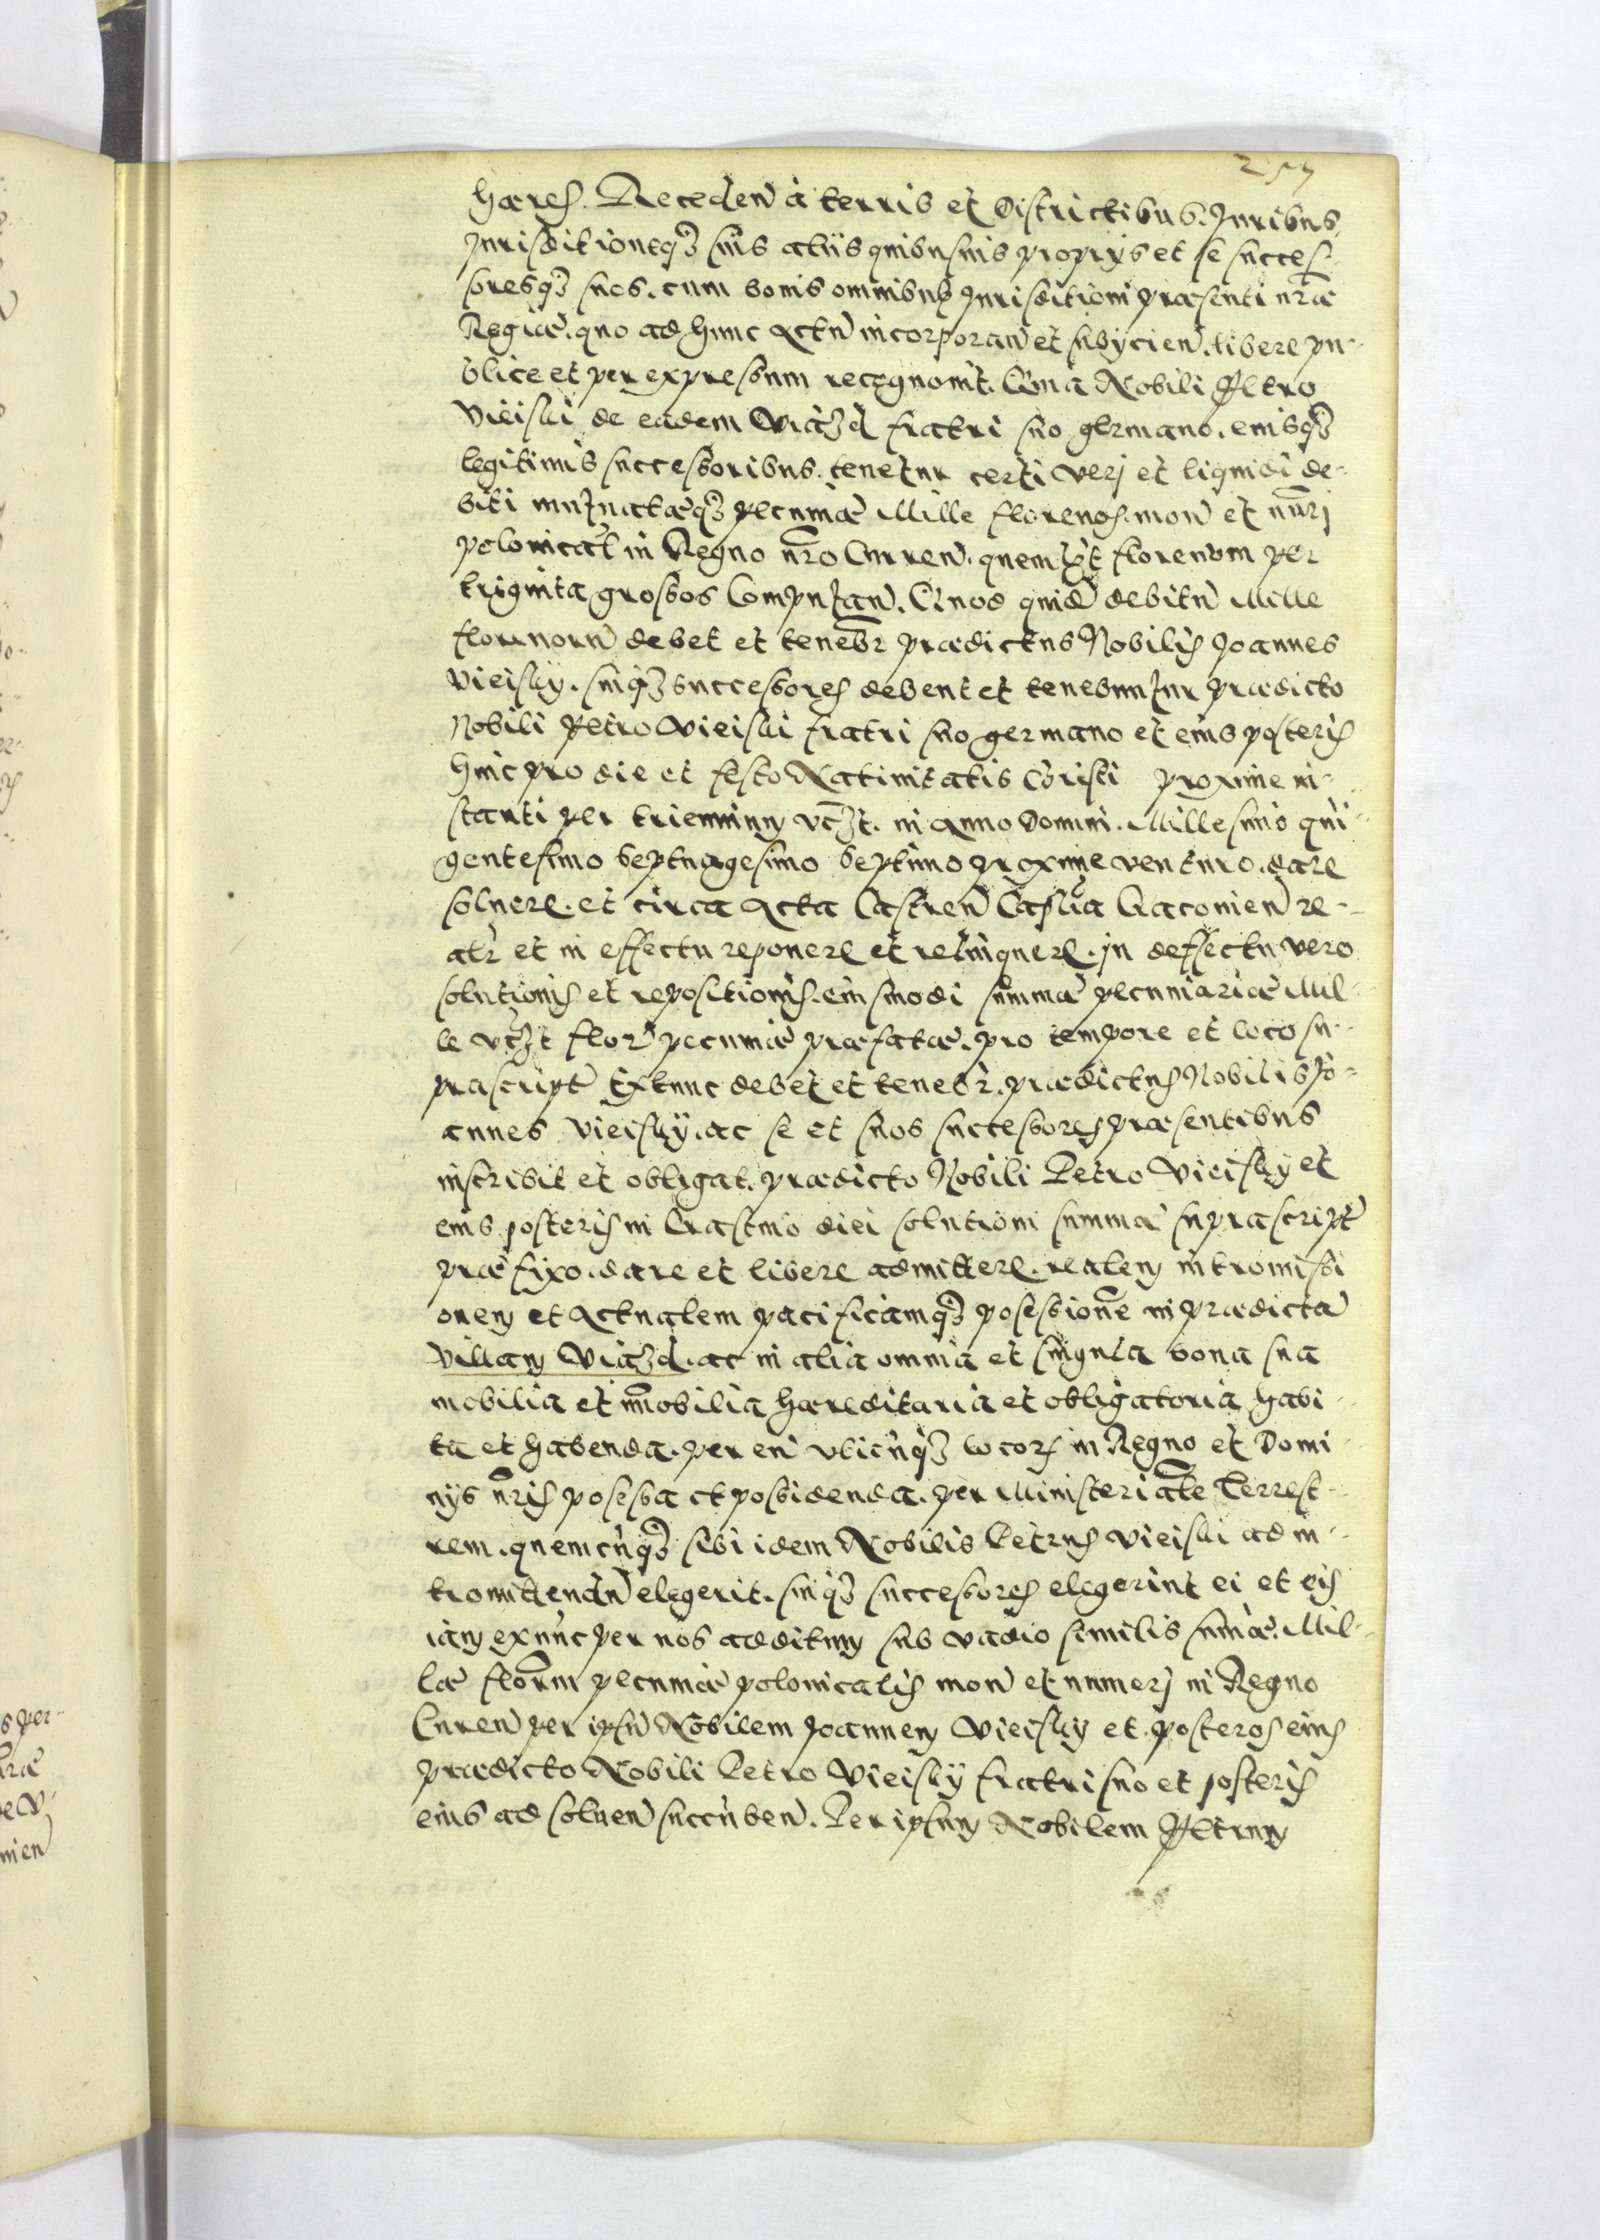 257
hæres. Receden à terris et Districtibus. Juribus,
Jurisditioneq₃ suis aliis quibusuis proprys et se succes-
soresq₃ suos. cum bonis omnibus Jurisditioni præsenti nræ
Regiæ. quo ad hunc Actu incorporan et subycien. libere pu-
blice et per expressum recognouit. Quia Nobili Petro
Vieiski de eadem Viazd fratri suo germano. eiusq₃
legitimis successoribus. tenetur certi veri et liquidi de-
biti mutuatæq₃ pecuniæ Mille florenos. mon et nuri
polonical in Regno nro Curren. quemlbt florenum per
triginta grossos Computan. Quod quide debitu Mille
florenoru debet et tenebr prædictus Nobilis Joannes
Vieisky. suiq₃ successores debent et tenebuntur prædicto
Nobili Petro Vieiski fratri suo germano et eius posteris
hinc pro die et festo Natiuitatis Christi proxime in-
stanti per triennium vczt. in Anno Domini. Millesimo qui-
gentesimo septuagesimo septimo proxime venturo. dare
soluere. et circa Acta Castren Capłia Cracouien re-
alr et in effectu reponere et relinquere. in deffectu vero
solutionis et repositionis. eiusmodi summæ pecuniariæ Mil-
le vczt flor pecuniæ præfatæ. pro tempore et loco su-
prascript Extunc debet et tenebr. prædictus Nobilis Jo-
annes Vieisky. ac se et suos successores præsentibus
inscribit et obligat. prædicto Nobili Petro Vieisky et
eius posteris in Crastino diei solutioni summæ suprascript
præfixo. dare et libere admittere. realem intromissi
onem et Actualem pacificamq₃ posessione in prædicta
Villam Viazd. ac in alia omnia et singula bona sua
mobilia et imobilia hæreditaria et obligatoria habi-
ta et habenda. per eu vbicuq₃ locor in Regno et Domi-
nys nris posessa et possidenda. per Ministeriale Terrest-
rem. quemcuq₃ sibi idem Nobilis Petrus Vieiski ad in-
tromittendu elegerit. suiq₃ successores elegerint ei et eis
iam exnunc per nos additum sub vadio similis sumæ. Mil-
læ florm pecuniæ polonicalis mon et numeri in Regno
Curen per ipsu Nobilem Joannem Vieisky et posteros eius
prædicto Nobili Petro Vieisky fratri suo et posteris
eius ad soluen succuben. Per ipsum Nobilem Petrum